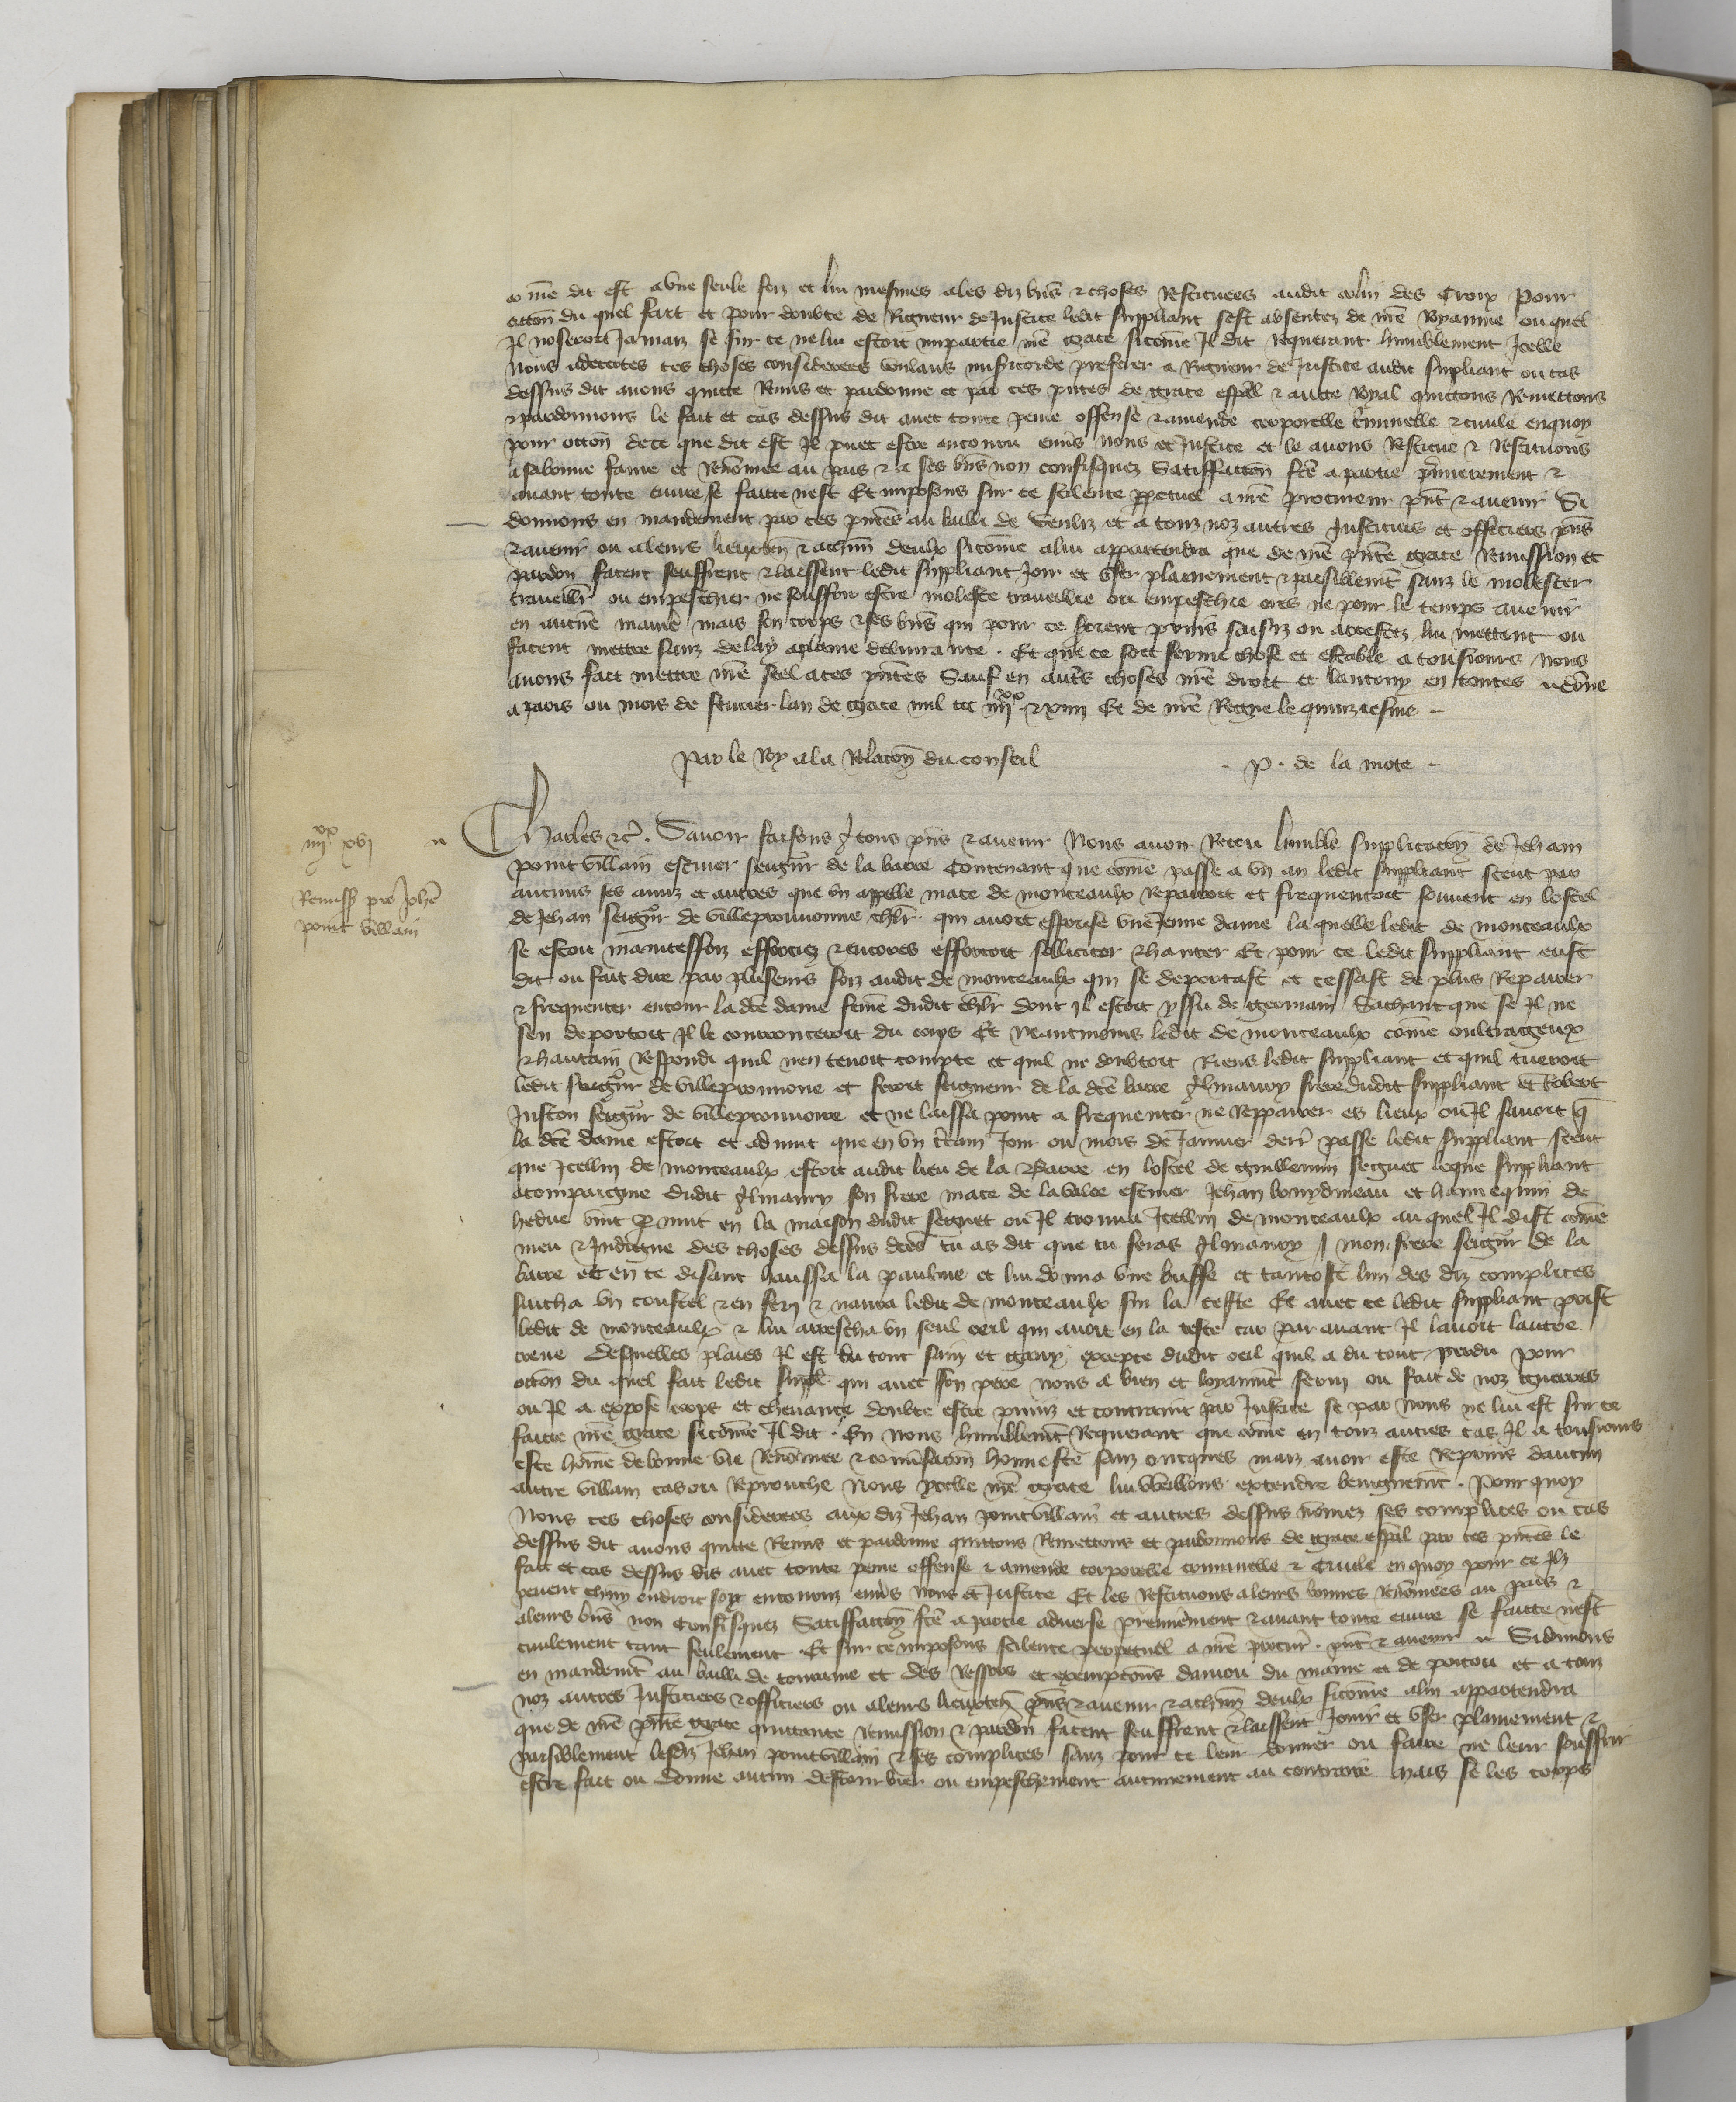 co me dit est a une seule foiz et lui mesmes a les diz biens & choses restituees audit colin des croix Pour
occon du quel fait et pour doubte de Rigueur de Justice ledit suppliant sest absentez de nre Royaume ou quel
Il noseroit Jamaiz se sur ce ne lui estoit impartie nre grace sicome Il dit requerant humblement Icelle
Nous adecertes ces choses considerees voulans misericorde preferer a Rigueur de Justice audit suppliant ou cas
dessus dit avons quicte Remis et pardonne et par ces pntes de grace espal & aucte Royal quictons Remettons
& pardonnons le fait et cas dessus dit avec toute peine offense & amende corporelle criminelle & civile en quoy
pour occon de ce que dit est Il puet estre encouru envers nous et Justice et le avons Restitue & restituons
a sa bonne fame et Renomee au pais & a ses biens non confisquez Satisfaccon fce a partie premierement &
avant toute euvre se faicte nest Et imposons sur ce scilence perpetuel a nre procureur pnt & avenir Si
donnons en mandement par ces pntes au bailli de Senliz et a touz noz autres Justiciers et officiers pns
& avenir ou a leurs lieuxten & a chun deulx sicome a lui appartendra que de nre pnte grace Remission et
pardon facent seuffrent & laissent ledit suppliant Joir et user plainement & paisiblement sanz le molester
travaillier ou empeschier ne souffrir estre moleste travaillie ou empeschie ores ne pour le temps avenir
en aucune maniere mais son corps & ses biens qui pour ce seroient prins saisiz ou arrestez lui mettent ou
facent mettre sanz delay a plaine delivrance . Et que ce soit ferme chose et estable a tousiours Nous
avons fait mettre nre seel a ces pntes Sauf en autres choses nre droit et lautruy en toutes Donne
a paris ou mois de fevrier lan de grace mil ccc iiiixx & xiiii Et de nre Regne le quinziesme .
Par le Roy a la Relacon du conseil
. P . de la mote .
iiiixx xvi
Charles &c . Savoir faisons a tous pns & avenir Nous avoir Receu lumble supplicacon de Jehan
pointvillain escuier seigneur de la barre Contenant que come passe a un an ledit suppliant sceut par
aucuns ses amiz et autres que un appelle mace de monceaulx repairoit et frequentoit souvent en lostel
Remissio pro Johe
point villain
de Jehan seigneur de villeprouvoire chlr qui avoit espouse une Jeune dame la quelle ledit de monceaulx
se estoit maintesfoiz efforciez & encores efforcoit solliciter & hanter Et pour ce ledit suppliant eust
dit ou fait dire par plusieurs foiz audit de monceaulx qui se deportast et cessast de plus Repairer
& frequenter entour la dce dame feme dudit chlr dont il estoit yssu de germain Sachant que se Il ne
sen deportoit Il le courrouceroit du corps Et Neantmoins ledit de monceaulx come oultrageux
& hautain respondi quil nen tenoit compte et quil ne doubtoit Riens ledit suppliant et quil tueroit
ledit seigneur de villeprouvoire et feroit seigneur de la dce barre frere dudit suppliant et Robert
Juston seigneur de villeprouvoire et ne laissa point a frequenter ne Repparrer es lieux ou Il savoit q
la dce dame estoit et advint que en un certain Jour ou mois de Janvier derr passe ledit suppliant sceut
que Icellui de monceaulx estoit audit lieu de la Barre en lostel de guillemin seguet leque suppliant
acompaigne dudit son frere mace de la escuier Jehan et hannequin de
vint nuit en la maison dudit seguet ou Il trouva Icellui de monceaulx au quel Il dist come
meu & Indigne des choses dessus dces tu as dit que tu feras mon frere seigneur de la
barre et en ce disant haussa la paulme et lui donna une buffe et tantost lun des diz complices
sacha un coustel & en feri & navra ledit de monceaulx sur la teste Et avec ce ledit suppliant prist
ledit de monceaulx & lui arrescha un seul oeil qui avoit en la teste car par avant Il lavoit lautre
creve Desquelles plaies Il est du tout sain et gary excepte dudit oeil quil a du tout perdu Pour
occon du quel fait ledit suppl qui avec son pere nous a bien et loyaument servi ou fait de noz guerres
ou Il a expose corps et chevance doubte estre puniz et contraint par Justice se par Nous ne lui est sur ce
faicte nre grace sicome Il dit . En nous humblement Requerant que come en touz autres cas Il a tousiours
este home de bonne vie Renomee & conversacon honneste sanz oncques maiz avoir este Reprins daucun
autre villain cas ou Reprouche Nous ycelle nre grace lui vueillons extendre benignement . Pour quoy
Nous ces choses considerees aux diz Jehan pointvillain et autres dessus nomez ses complices ou cas
dessus dit avons quicte Remis et pardonne quictons Remettons et pardonnons de grace espal par ces pntes le
fait et cas dessus dis avec toute peine offense & amende corporelle criminelle & Civile en quoy pour ce Ilz
pevent chun endroit soy encouruz envers Nous et Justice Et les restituons a leurs bonnes Renomees au pais &
a leurs biens non Confisquez Satisfaccon fce a partie adverse premierement & avant toute euvre se faicte nest
civilement tant seulement . Et sur ce imposons scilence perpetuel a nre procureur . pnt & avenir Si donnons
en mandement au bailli de touraine et des Ressors et exempcons danjou du maine et de poitou et a touz
noz autres Justiciers & officiers ou a leurs lieuxten pns & avenir & a chun deulx sicome a lui appartendra
que de nre pnte grace quictance Remission & pardon facent seuffrent & laissent Jouir et user plainement &
paisiblement lesdiz Jehan pointvillain & ses complices sanz pour ce leur donner ou faire ne leur souffrir
estre fait ou donne aucun destourbier ou empeschement aucunement au contraire Mais se les corps